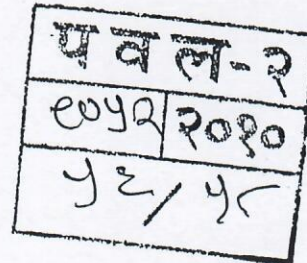 पवल-२
९०५२ २०१०
५६/५८